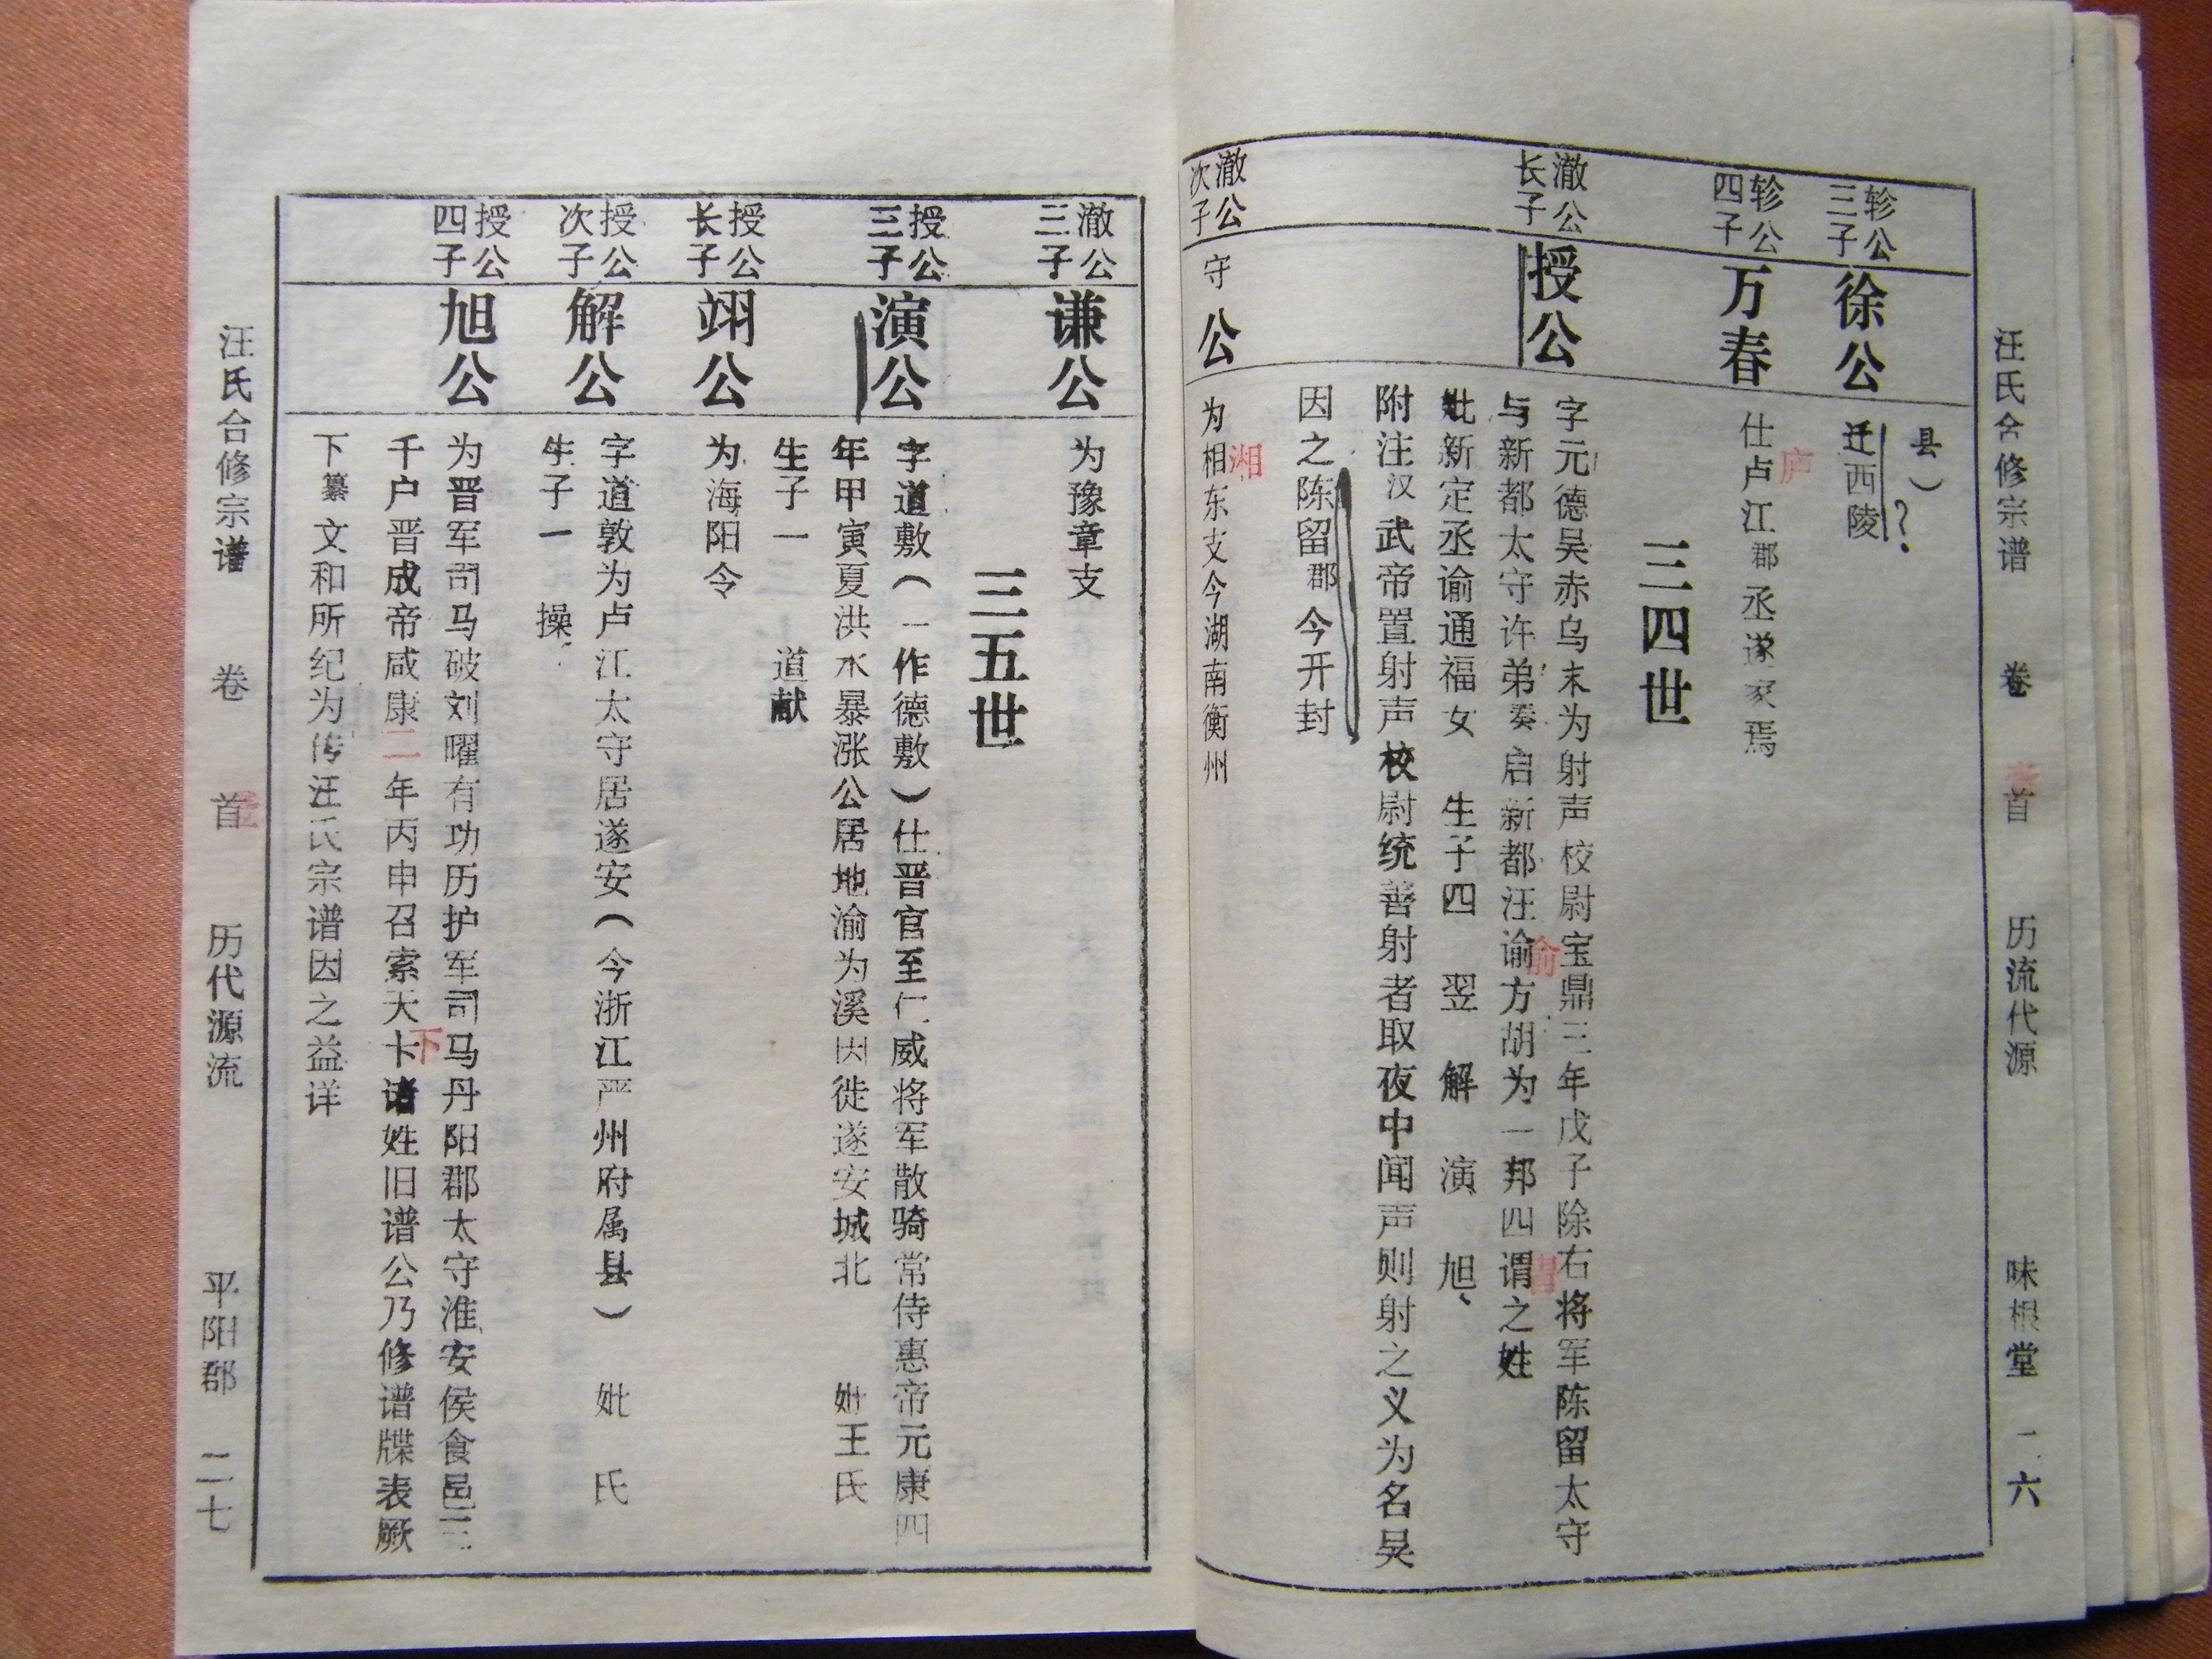 汪氏合修宗谱 卷 首 历流代源 味根堂 二六
县）？
轸公三子
徐公
迁西陵
轸公四子
万春
仕卢江郡丞遂家焉
庐
三四世
澈公长子
授公
字元德吴赤乌末为射声校尉宝鼎三年戊子除右将军陈留太守
与新都太守许弟奏启新都汪谕方胡为一邦四谓之姓
俞
妣新定丞谕通福女 生子四 翌 解 演 旭、
附注汉武帝置射声校尉统善射者取夜中闻声则射之义为名吴
因之陈留郡今开封
澈公次子
守公
为相东支今湖南衡州
湘
澈公三子
谦公
为豫章支
三五世
授公三子
演公
字道敷（一作德敷）仕晋官至仁威将军散骑常侍惠帝元康四
年甲寅夏洪水暴涨公居地渝为溪因徙遂安城北 妣王氏
生子一 道献
授公长子
翊公
为海阳令
授公次子
解公
字道敦为卢江太守居遂安（今浙江严州府属县） 妣 氏
生子一 操
授公四子
旭公
为晋军司马破刘曜有功历护军司马丹阳郡太守淮安侯食邑三
千户晋成帝咸康二年丙申召索天卞诸姓旧谱公乃修谱牒表厥
下
下纂文和所纪为传汪氏宗谱因之益详
汪氏合修宗谱 卷 首 历代源流 平阳郡 二七